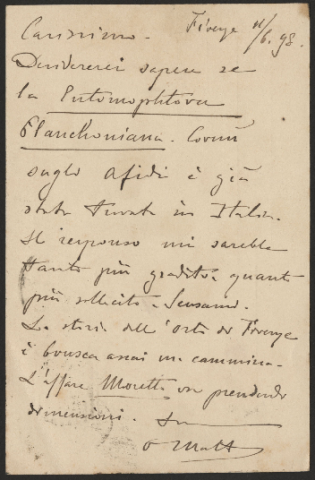 Carissimo. Firenze 11/6.98.
Desidererei sapere se
la Entomophtora
Planchoniana. Cornu
sugli Afidi è già
stata trovata in Italia.
Il responso mi sarebbe
tanto più gradito, quanto
più sollecito. Scusami.
La storia dell'Orto di Firenze
è assai in cammino.
L'affare Moretti va prendendo
dimensioni.